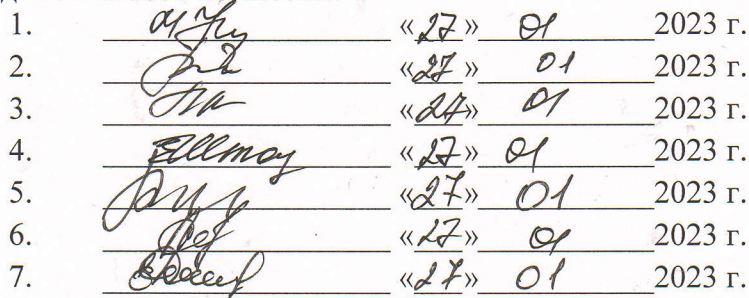 1. «27» 01 2023 г.
2. «27» 01 2023 г.
3. «27» 01 2023 г.
4. «27» 01 2023 г.
5. «27» 01 2023 г.
6. «27» 01 2023 г.
7. «27» 01 2023 г.